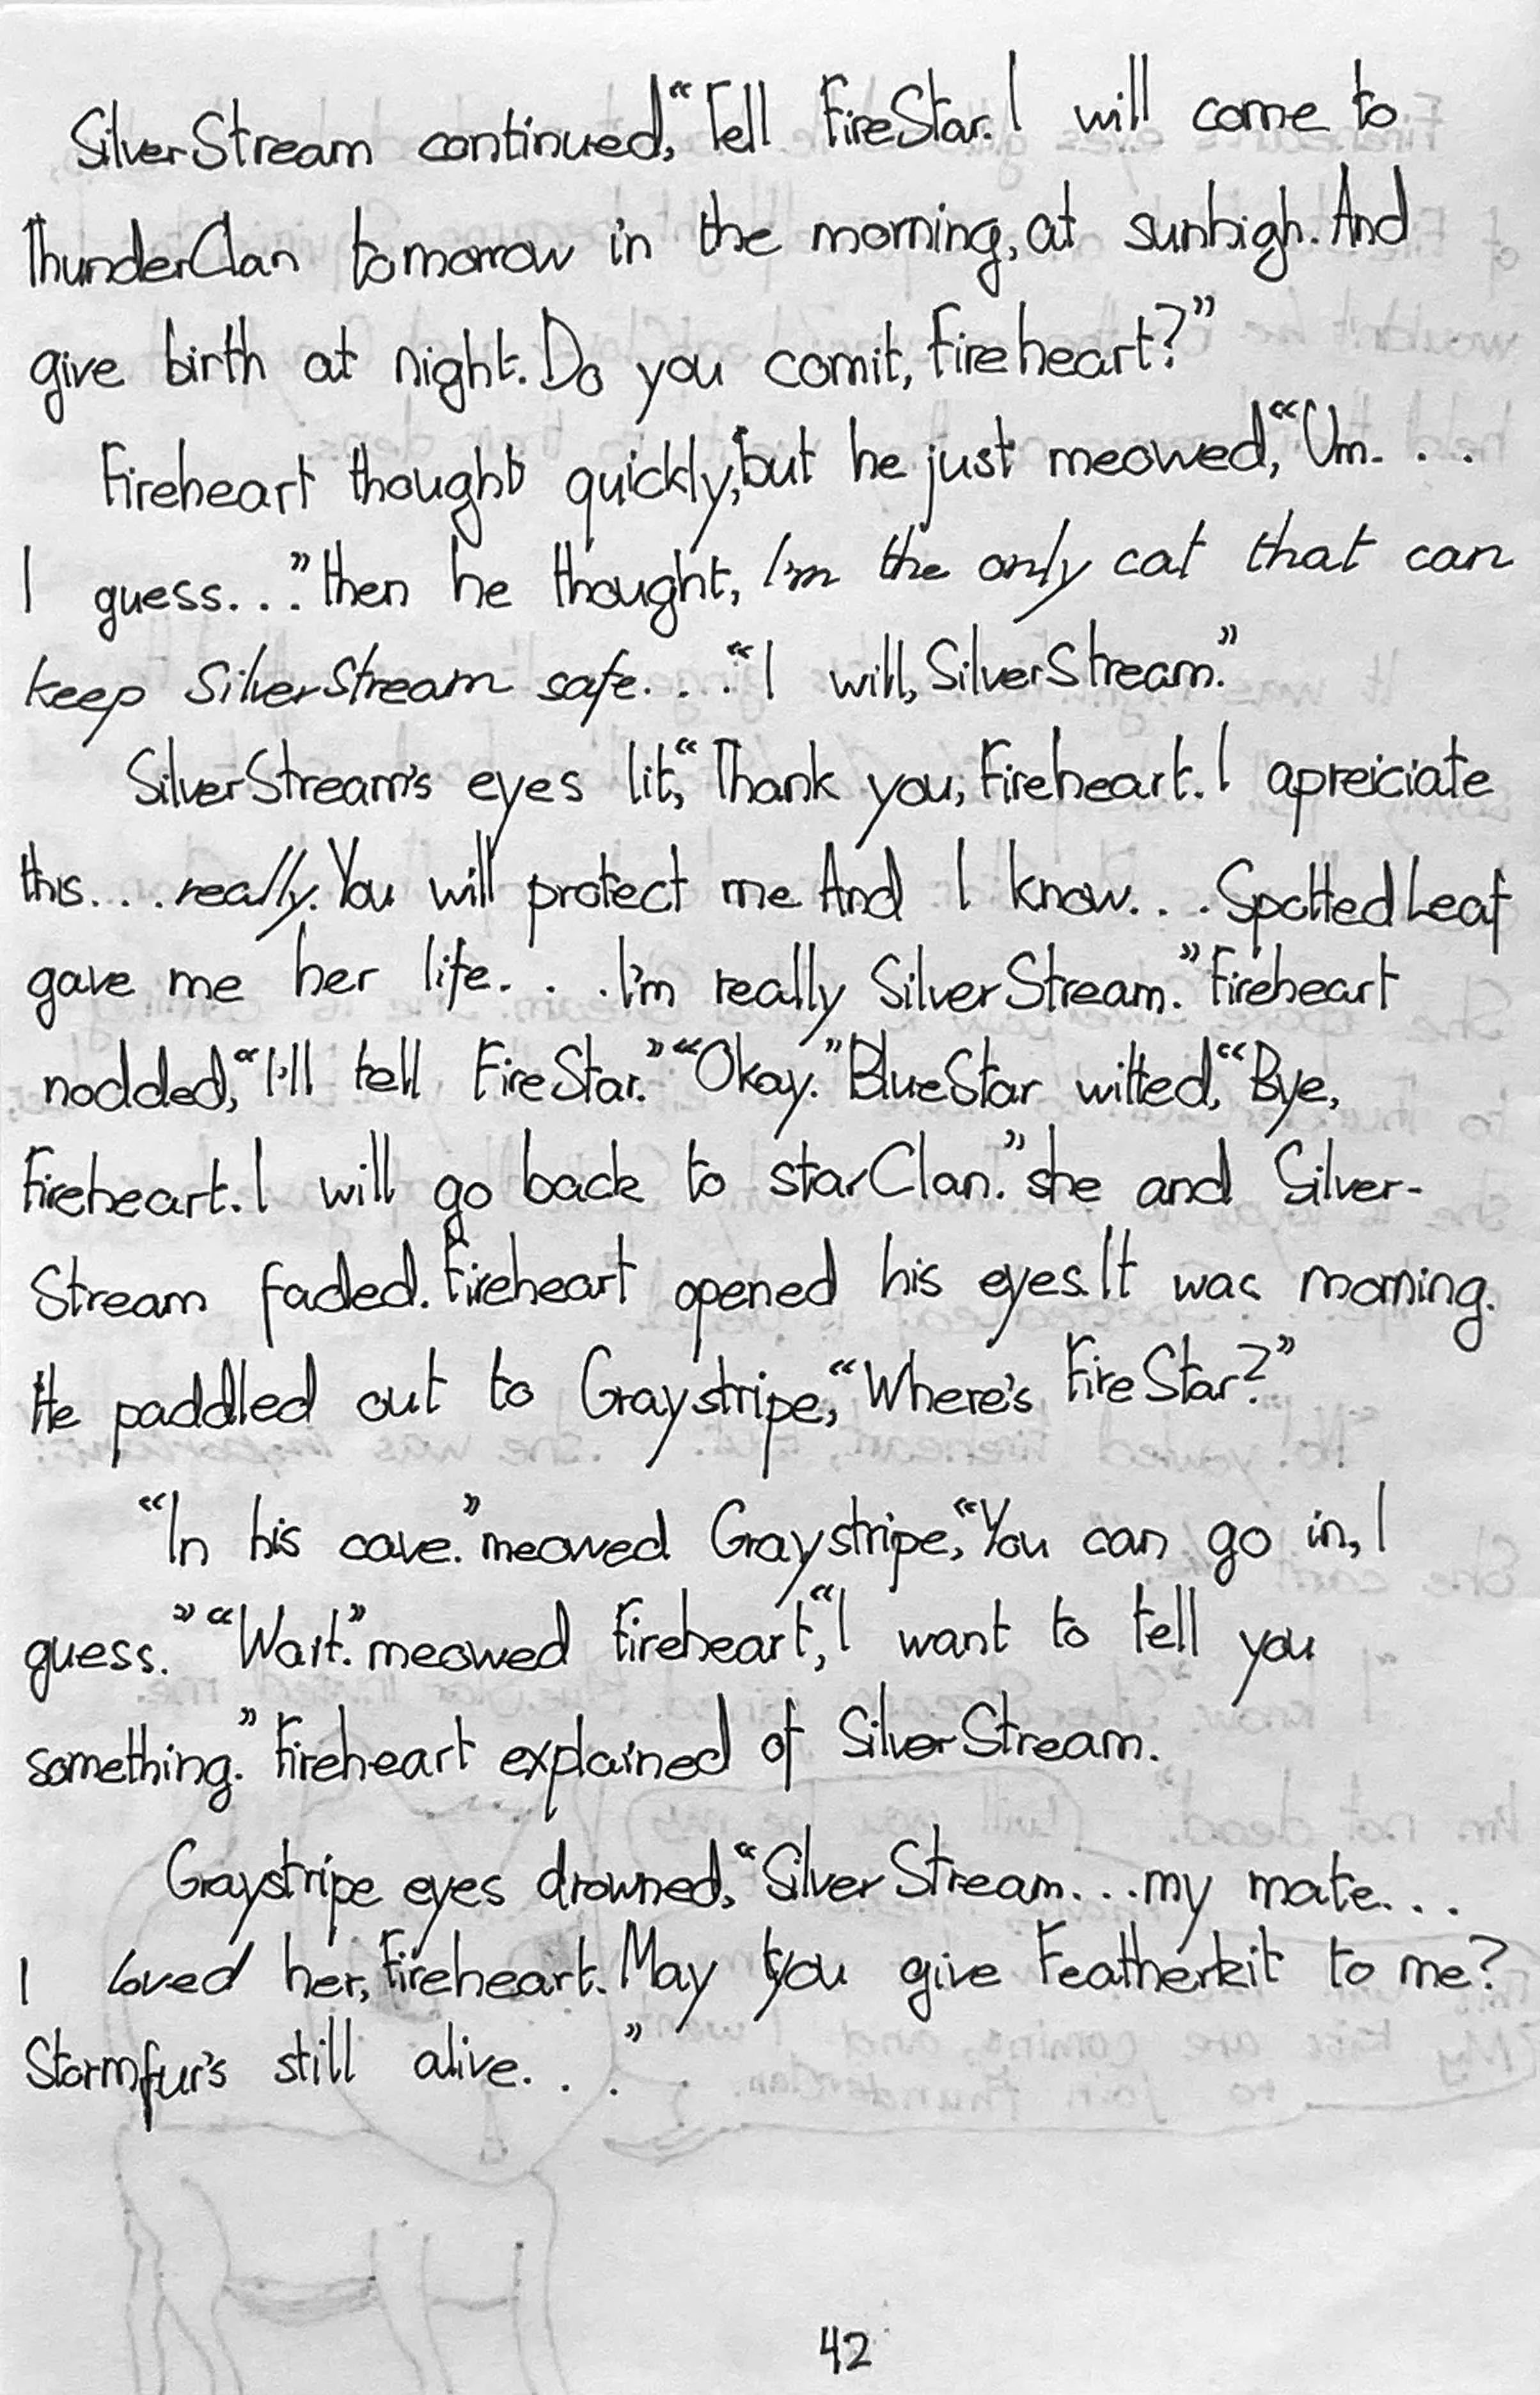 SilverStream continued, “Tell FireStar. I will come to
ThunderClan tomorrow in the morning, at sunhigh. And
give birth at night. Do you comit, Fireheart?”
Fireheart thought quickly, but he just meowed, “Um. . .
I guess. . .” then he thought, I'm the only cat that can
keep SilverStream safe. . . “I will, SilverStream.”
SilverStream's eyes lit, “Thank you, Fireheart. I apreiciate
this. . . really. You will protect me And I know. . . SpottedLeaf
gave me her life. . . I'm really SilverStream.” Fireheart
nodded, “I'll tell FireStar.” “Okay.” BlueStar witted, “Bye,
Fireheart. I will go back to starClan.” she and Silver-
Stream faded. Fireheart opened his eyes. It was morning.
He paddled out to Graystripe, “Where's FireStar?”
“In his cave.” meowed Graystripe, “You can go in, I
guess.” “Wait.” meowed Fireheart, “I want to tell you
something.” Fireheart explained of SilverStream.
Graystripe eyes drowned, “SilverStream. . . my mate. . .
I loved her, Fireheart. May you give Featherkit to me?
Stormfur's still alive. . .”
42